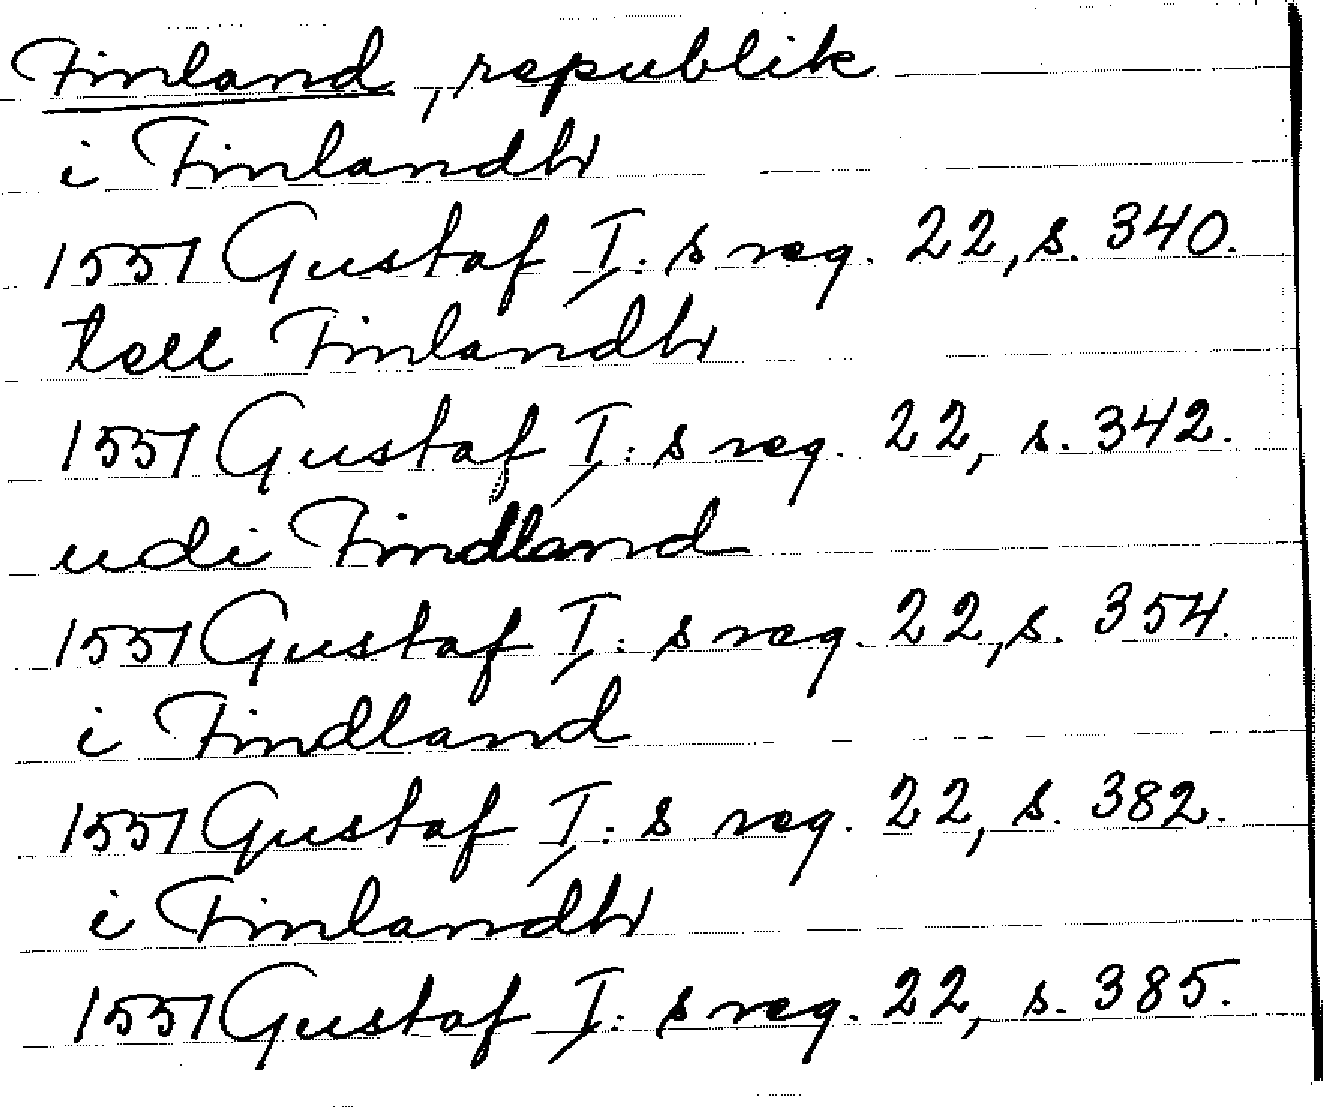 Finland, republik
i Finlandh
1551 Gustaf I:s reg. 22, s. 340.
tell Finlandh
1551 Gustaf I:s reg. 22, s. 342.
udi Findland
1551 Gustaf I:s reg. 22, s. 354.
i Findland
1551 Gustaf I:s reg. 22, s. 382.
i Finlandh
1551 Gustaf I:s reg. 22, s. 385.